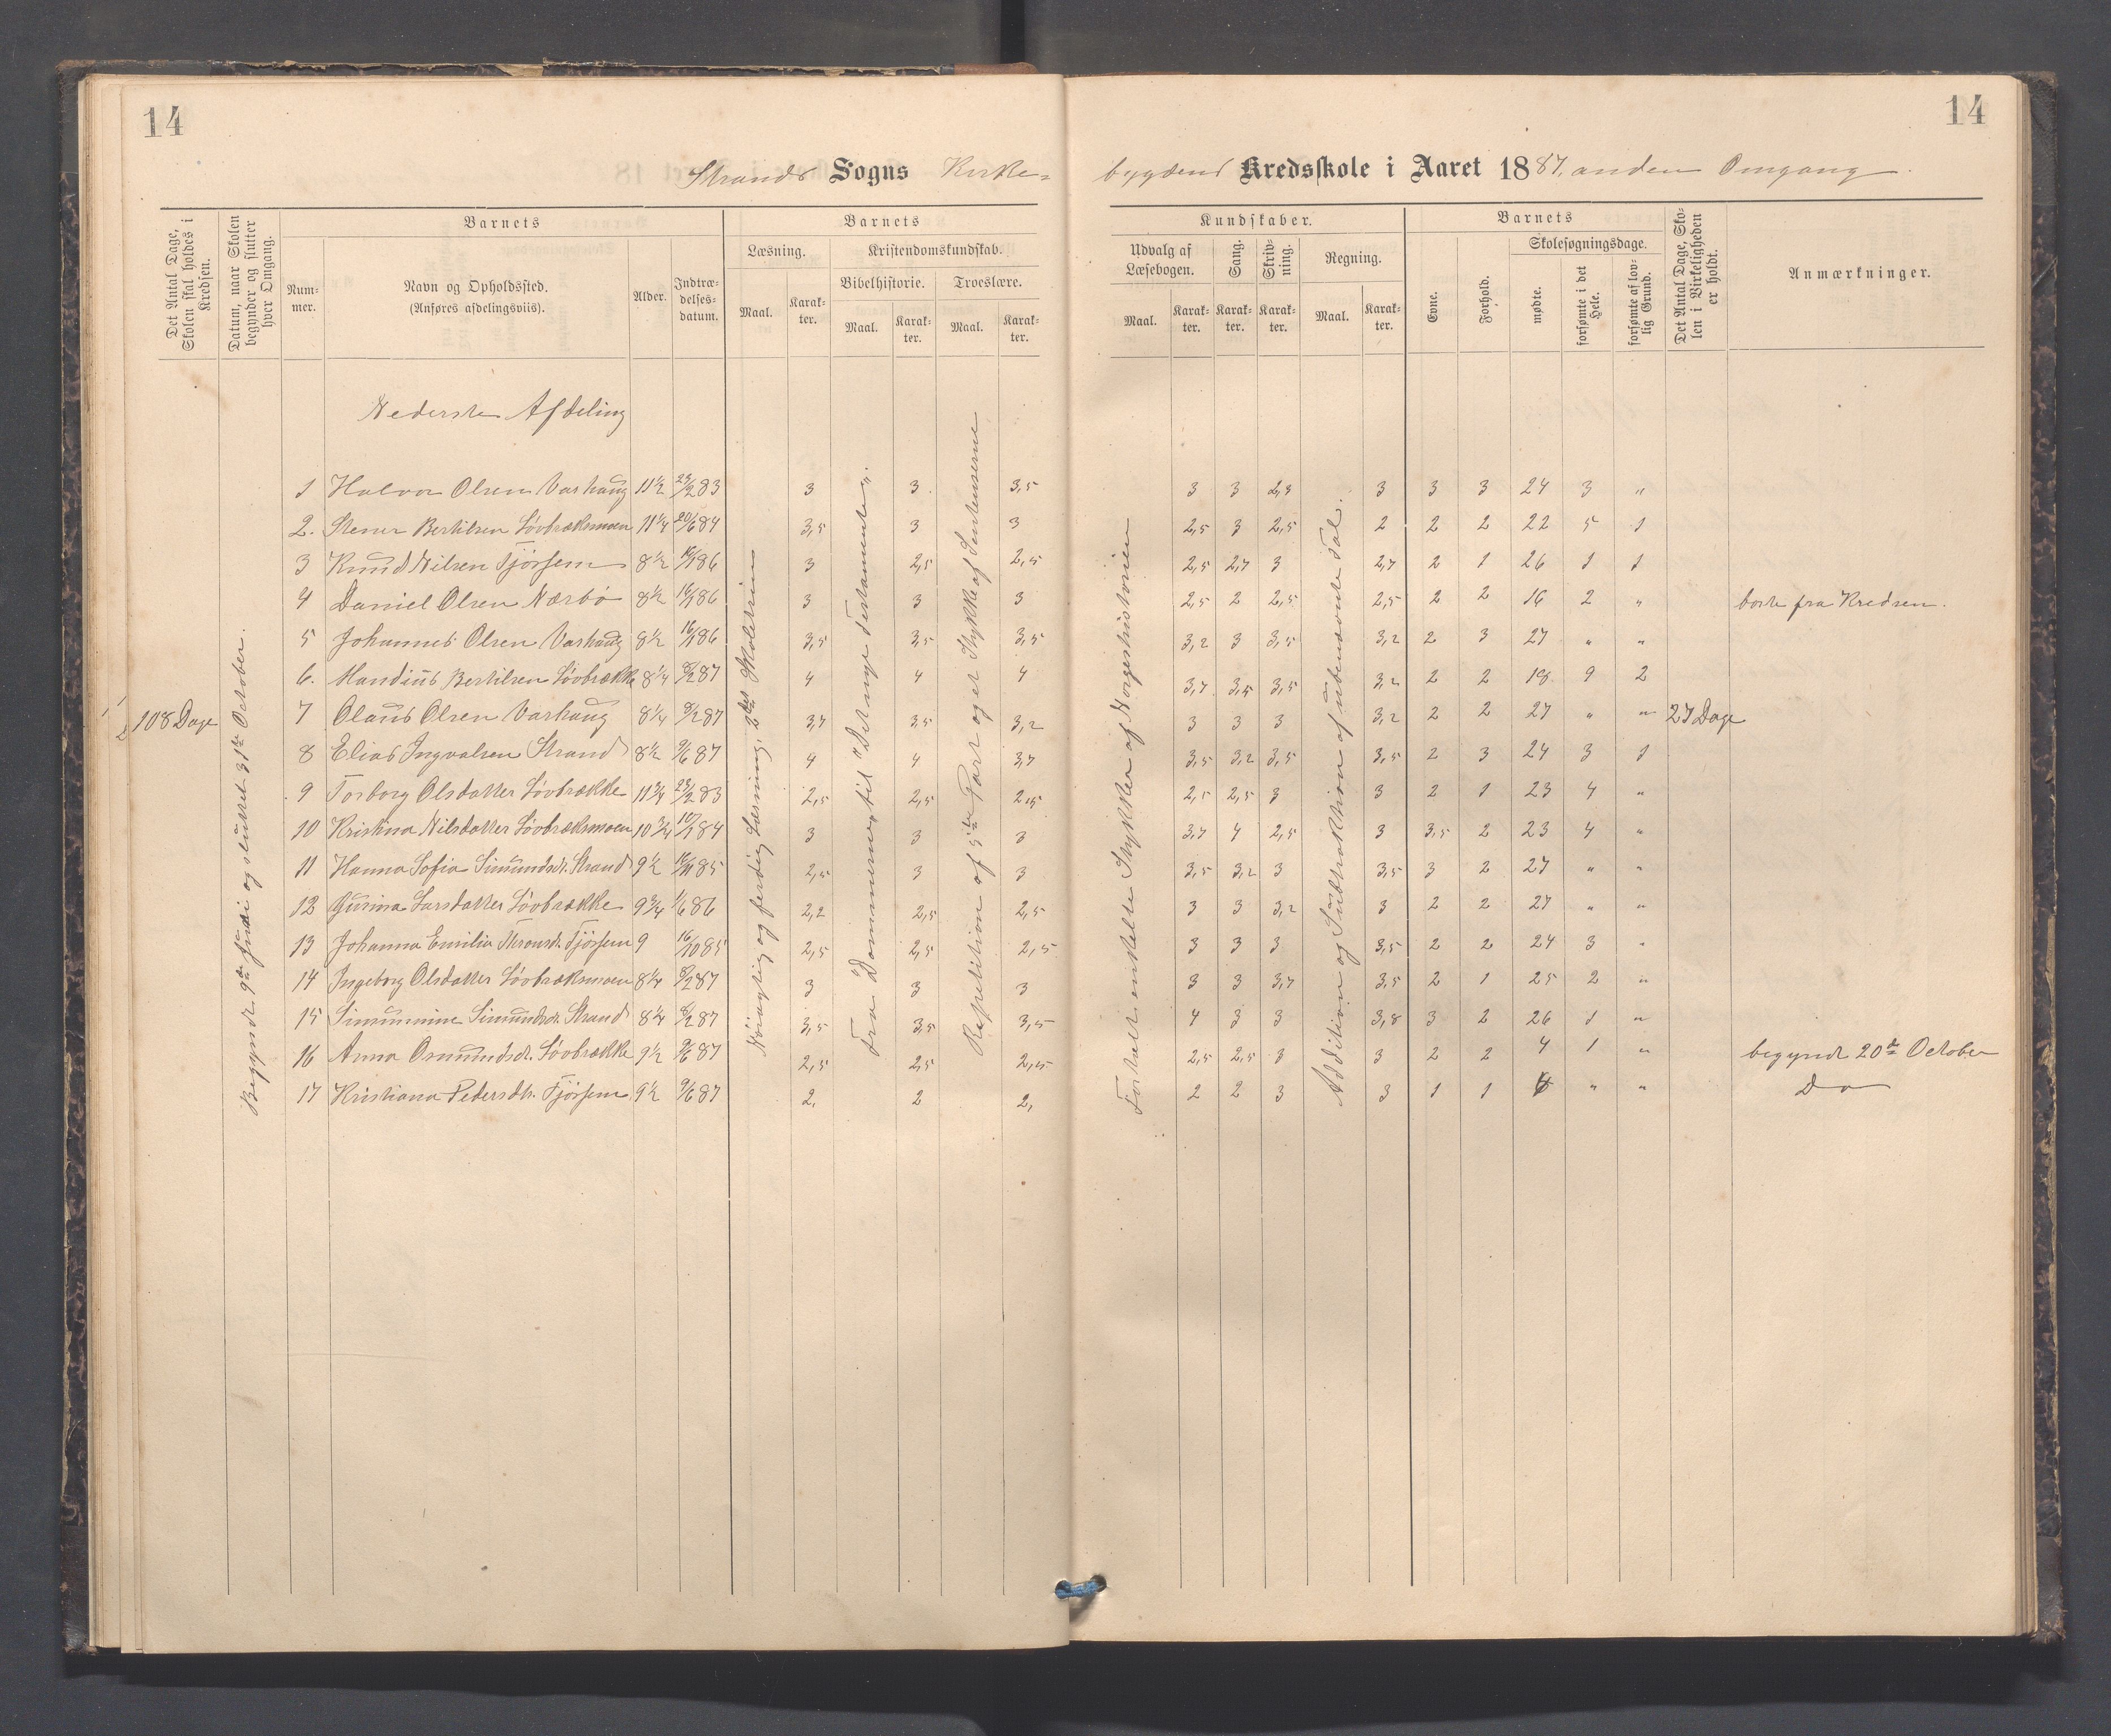 14
14
Strands Sogns Kirke=
bygdens Kredsskole i Aaret 1887, anden Omgang.
Det Antal Dage, Skolen skal holdes i Kredsen.
Datum, naar Skolen begynder og slutter hver Omgang.
Barnets
Num-mer.
Navn og Opholdssted.
(Anføres afdelingsviis).
Alder.
Indtræ-delses-datum.
Barnets
Læsning.
Maal.
Karak-ter.
Kristendomskundskab.
Bibelhistorie.
Maal.
Karak-ter.
Troeslære.
Maal.
Karak-ter.
Kundskaber.
Udvalg af Læsebogen.
Maal.
Karak-ter.
Sang.
Karak-ter.
Skriv-ning.
Karak-ter.
Regning.
Maal.
Karak-ter.
Barnets
Evne.
Forhold.
Skolesøgningsdage.
mødte.
forsømte i det Hele.
forsømte af lov-lig Grund.
Det Antal Dage, Sko-len i Virkeligheden er holdt.
Anmærkninger.
Nederste Afdeling
108 Dage
Begyndt 9de Juni og sluttet 31te October.
Nöiagtig og færdig Læsning, 2det Skoletrin
Fra "Dommerne" til "Det nye Testamente".
Repetition af 5te Part og et Stykke af Sentenserne
Fortalt enkelte Stykker af Norgeshistorien
Addition og Subtraktion af ubenævnte Tal.
27 Dage
1 Halvor Olsen Varhaug 11 1/2 23/2 83 3 3 3,5 3 3 2,3 3 3 3 24 3 "
2. Stener Bertilsen Lövbræksmoen 11 1/4 20/6 84 3,5 3 3 2,5 3 2,5 2 2 2 22 5 1
3 Knud Nilsen Fjörsem 8 1/2 16/1 86 3 2,5 2,5 2,5 2,7 3 2,7 2 1 26 1 1
4 Daniel Olsen Nærbö 8 1/2 16/1 86 3 3 3 2,5 2 2,5 2,5 2 2 16 2 " borte fra Kredsen.
5 Johannes Olsen Varhaug 8 1/2 16/1 86 3,5 3,5 3,5 3,2 3 3,5 3,2 2 3 27 " "
6. Mandius Bertilsen Lövbrække 8 1/4 8/2 87 4 4 4 3,7 3,5 3,5 3,2 2 2 18 9 2
7 Olaus Olsen Varhaug 8 1/4 8/2 87 3,7 3,5 3,2 3 3 3 3,2 2 2 27 " "
8 Elias Ingvalsen Strand 8 1/2 9/6 87 4 4 3,7 3,5 3,2 3,5 3,5 2 3 24 3 1
9 Torborg Olsdatter Lövbrække 11 3/4 23/2 83 2,5 2,5 2,5 2,5 2,5 3 3 2 1 23 4 "
10 Kristina Nilsdatter Lövbræksmoen 10 3/4 10/1 84 3 3 3 3,7 4 2,5 3 3,5 2 23 4 "
11 Hanna Sofia Simundsdt. Strand 9 1/2 85 2,5 3 3 3,5 3,2 3 3,5 3 2 27 " "
12 Gurina Larsdatter Lövbrække 9 3/4 1/6 86 2,2 2,5 2,5 3 3 3,2 3 2 2 27 " "
13 Johanna Emilia Fjörsem 9 16/10 85 2,5 2,5 2,5 3 3 3 3,5 2 2 24 3 "
14 Ingeborg Olsdatter Lövbræksmoen 8 1/4 8/2 87 3 3 3 3 3 3,7 3,5 2 1 25 2 "
15 Simunnine Simundsdt. Strand 8 1/4 8/2 87 3,5 3,5 3,5 4 3 3 3,8 3 2 26 1 "
16 Anna Osmundsdt. Lövbrække 9 1/2 9/6 87 2,5 2,5 2,5 2,5 2,5 3 3 2 2 4 1 " begyndt 20de October
17 Kristiana Pedersdtr. Fjörsem 9 1/2 9/6 87 2, 2 2, 2 2 3 3 1 1 " " Do